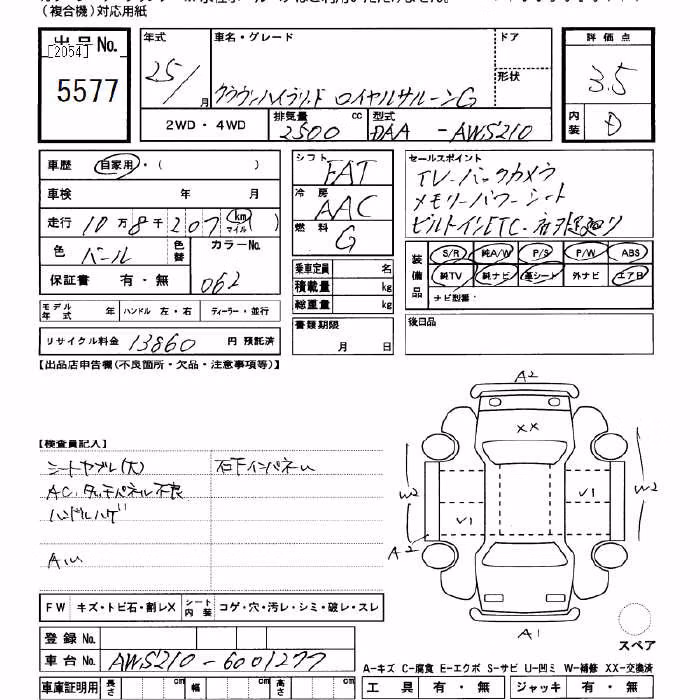 （複合機）対応用紙
出品No.
[2054]
5577
年式
25/
月
車名・グレード
クラウンハイブリッド ロイヤルサルーンG
ドア
形状
評価点
3.5
内装
D
2WD・4WD
排気量
cc
2500
型式
DAA - AWS210
車歴
自家用・( )
車検 年 月
走行 10万8千207 (km マイル)
色 パール
色替
カラーNo.
062
保証書 有・無
モデル年式 年
ハンドル 左・右
ディーラー・並行
リサイクル料金 13860 円 預託済
シフト
FAT
冷房
AAC
燃料
G
乗車定員 名
積載量 kg
総重量 kg
書類期限
月 日
セールスポイント
TV-バックカメラ
メモリーパワーシート
ビルトインETC
装備品
S/R 純A/W P/S P/W ABS
純TV 純ナビ 革シート 外ナビ エアB
ナビ型番：
後日品
【出品店申告欄(不良箇所・欠品・注意事項等)】
【検査員記入】
シートヤブレ(大)
石下インパネル
AC.タッチパネル不良
ハンドルハゲ
A.U
A2
XX
W2
V1
V1
W2
A2
A1
スペア
FW キズ・トビ石・割レX
シート内装 コゲ・穴・汚レ・シミ・破レ・スレ
登録No.
車台No. AWS210-6001277
車庫証明用 長さ cm 幅 cm 高さ cm
A-キズ C-腐食 E-エクボ S-サビ U-凹ミ W-補修 XX-交換済
工具 有・無 ジャッキ 有・無